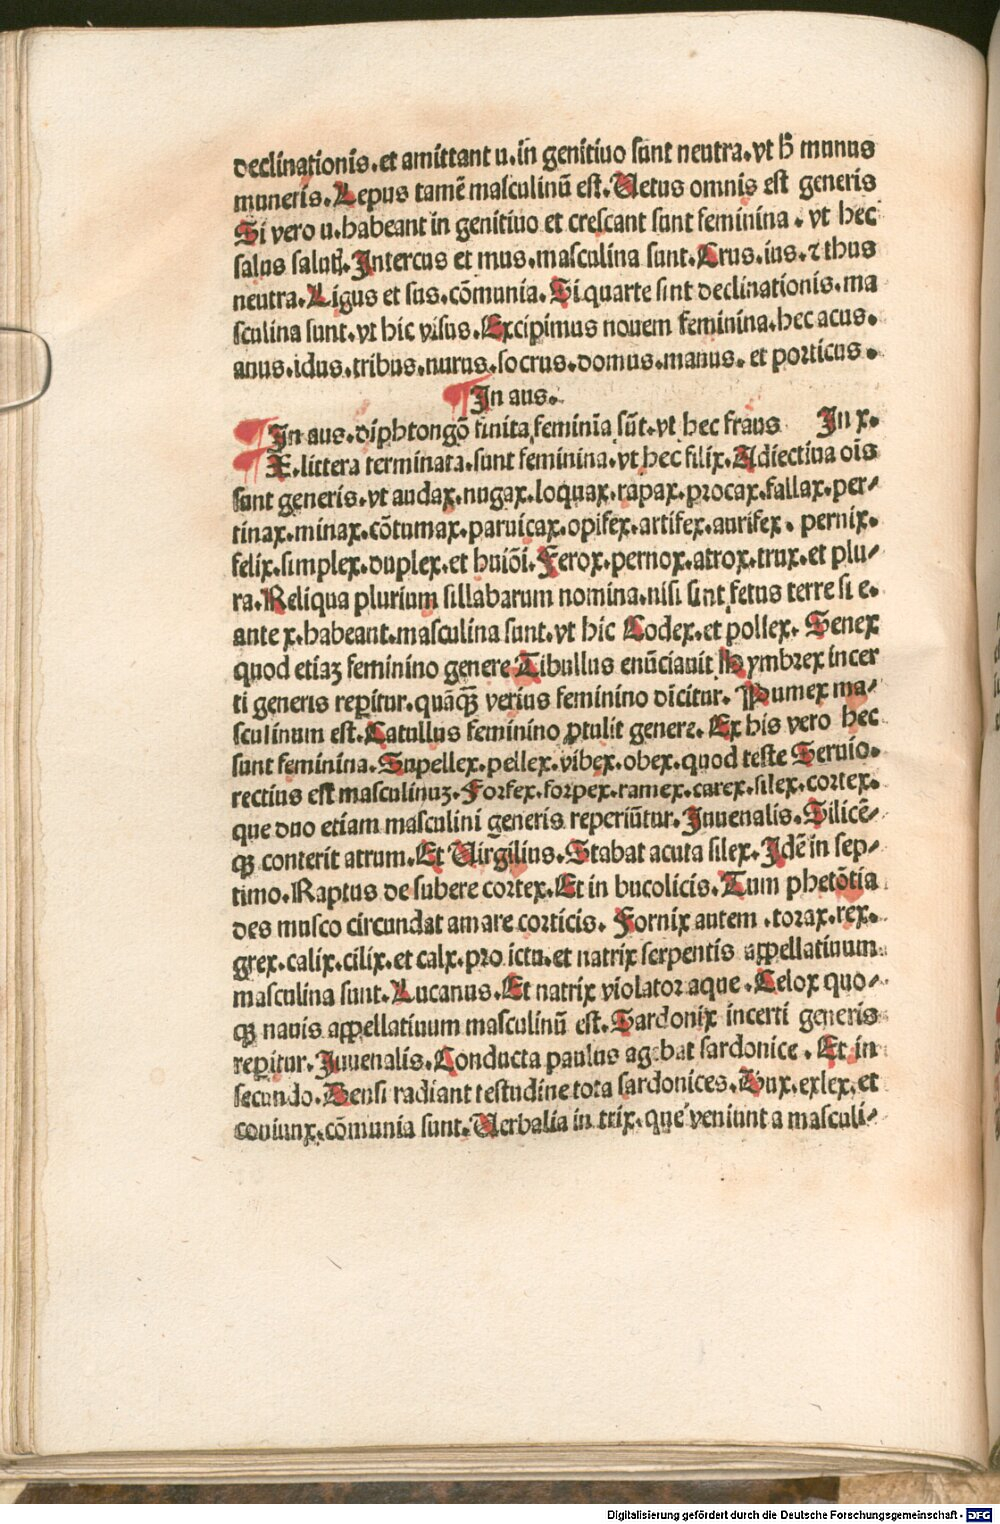 declinationis.et amittant u.in genitiuo sunt neutra.vt h̄ munus
muneris.Lepus tamē masculinū est.Uetus omnis est generis
Si vero u.habeant in genitiuo et crescant sunt feminina.vt hec
salus saluꝭ.Intercus et mus.masculina sunt.Crus.ius.⁊ thus
neutra.Ligus et sus.cōmunia.Si quarte sint declinationis.ma
sculina sunt.vt hic visus.Excipimus nouem feminina.hec acus.
anus.idus.tribus.nurus.socrus.domus.manus.et porticus.
¶ In aus.
¶ In aus.diphtongō finita feminīa sūt.vt hec fraus In x.
¶ X.littera terminata.sunt feminina.vt hec filix.Adiectiua oīs
sunt generis.vt audax.nugax.loquax.rapax.procax.fallax.per⸗
tinax.minax.cōtumax.paruicax.opifex.artifex.aurifex.pernix.
felix.simplex.duplex.et huiōi.Ferox.pernox.atrox.trux.et plu⸗
ra.Reliqua plurium sillabarum nomina.nisi sint fetus terre si e.
ante x.habeant.masculina sunt.vt hic Codex.et pollex.Senex
quod etiaꝫ feminino genere Tibullus enūciauit Hymbrex incer
ti generis reꝑitur.quāqꝫ̄ verius feminino dīcitur.Pumex ma⸗
sculinum est.Catullus feminino ꝓtulit genere.Ex his vero hec
sunt feminina.Supellex.pellex.vibex.obex.quod teste Seruio.
rectius est masculinuꝫ.Forfex.forpex.ramex.carex.silex.cortex.
que duo etiam masculini generis reperiūtur.Juuenalis.Silicē⸗
qꝫ conterit atrum.Et Uirgilius.Stabat acuta silex.Idē in sep⸗
timo.Raptus de subere cortex.Et in bucolicis.Tum phetōtia
des musco circundat amare corticis. Fornix autem.torax.rex.
grex.calix.cilix.et calx.pro ictu.et natrix serpentis aꝑpellatiuum
masculina sunt.Lucanus.Et natrix violator aque.Celox quo⸗
qꝫ nauis aꝑpellatiuum masculinū est.Sardonix incerti generis
reꝑitur.Juuenalis.Conducta paulus agebat sardonice.Et in
secundo.Densi radiant testudine tota sardonices.Dux.exlex.et
coniunx.cōmunia sunt.Uerbalia in trix.que veniunt a masculi⸗
Digitalisierung gefördert durch die Deutsche Forschungsgemeinschaft - DFG